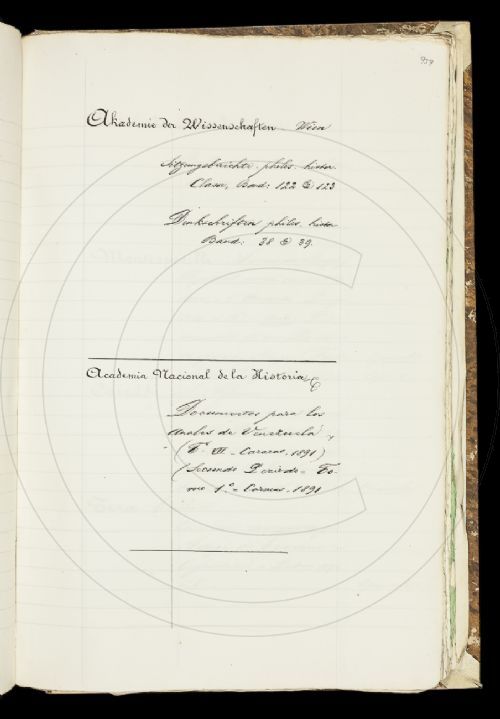 Akademie der Wissenschaften - Wien
Sitzungsberichte - philos. histor.
Classe, Band: 122 & 123
Denkschriften philos. histor
Band: 38 & 39.
Academia Nacional de la Historia
Documentos para los
Anales de Venezuela
(T. VII - Caracas - 1891)
(Segundo Periodo - To-
mo 1.º - Caracas - 1891